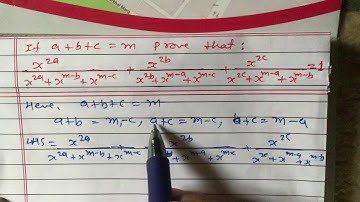 If a+b+c = m prove that :
x^2a/(x^2a+x^m-b+x^m-c) + x^2b/(x^2b+x^m-a+x^m-c) + x^2c/(x^2c+x^m-a+x^m-b) = 1
Here, a+b+c = m
a+b = m-c, a+c = m-c, b+c = m-a
LHS = x^2a/(x^2a+x^m-b+x^m-c) + x^2b/(+x^m-a+x^m-c) + x^2c/(x^2c+x^m-a+x^m-b)